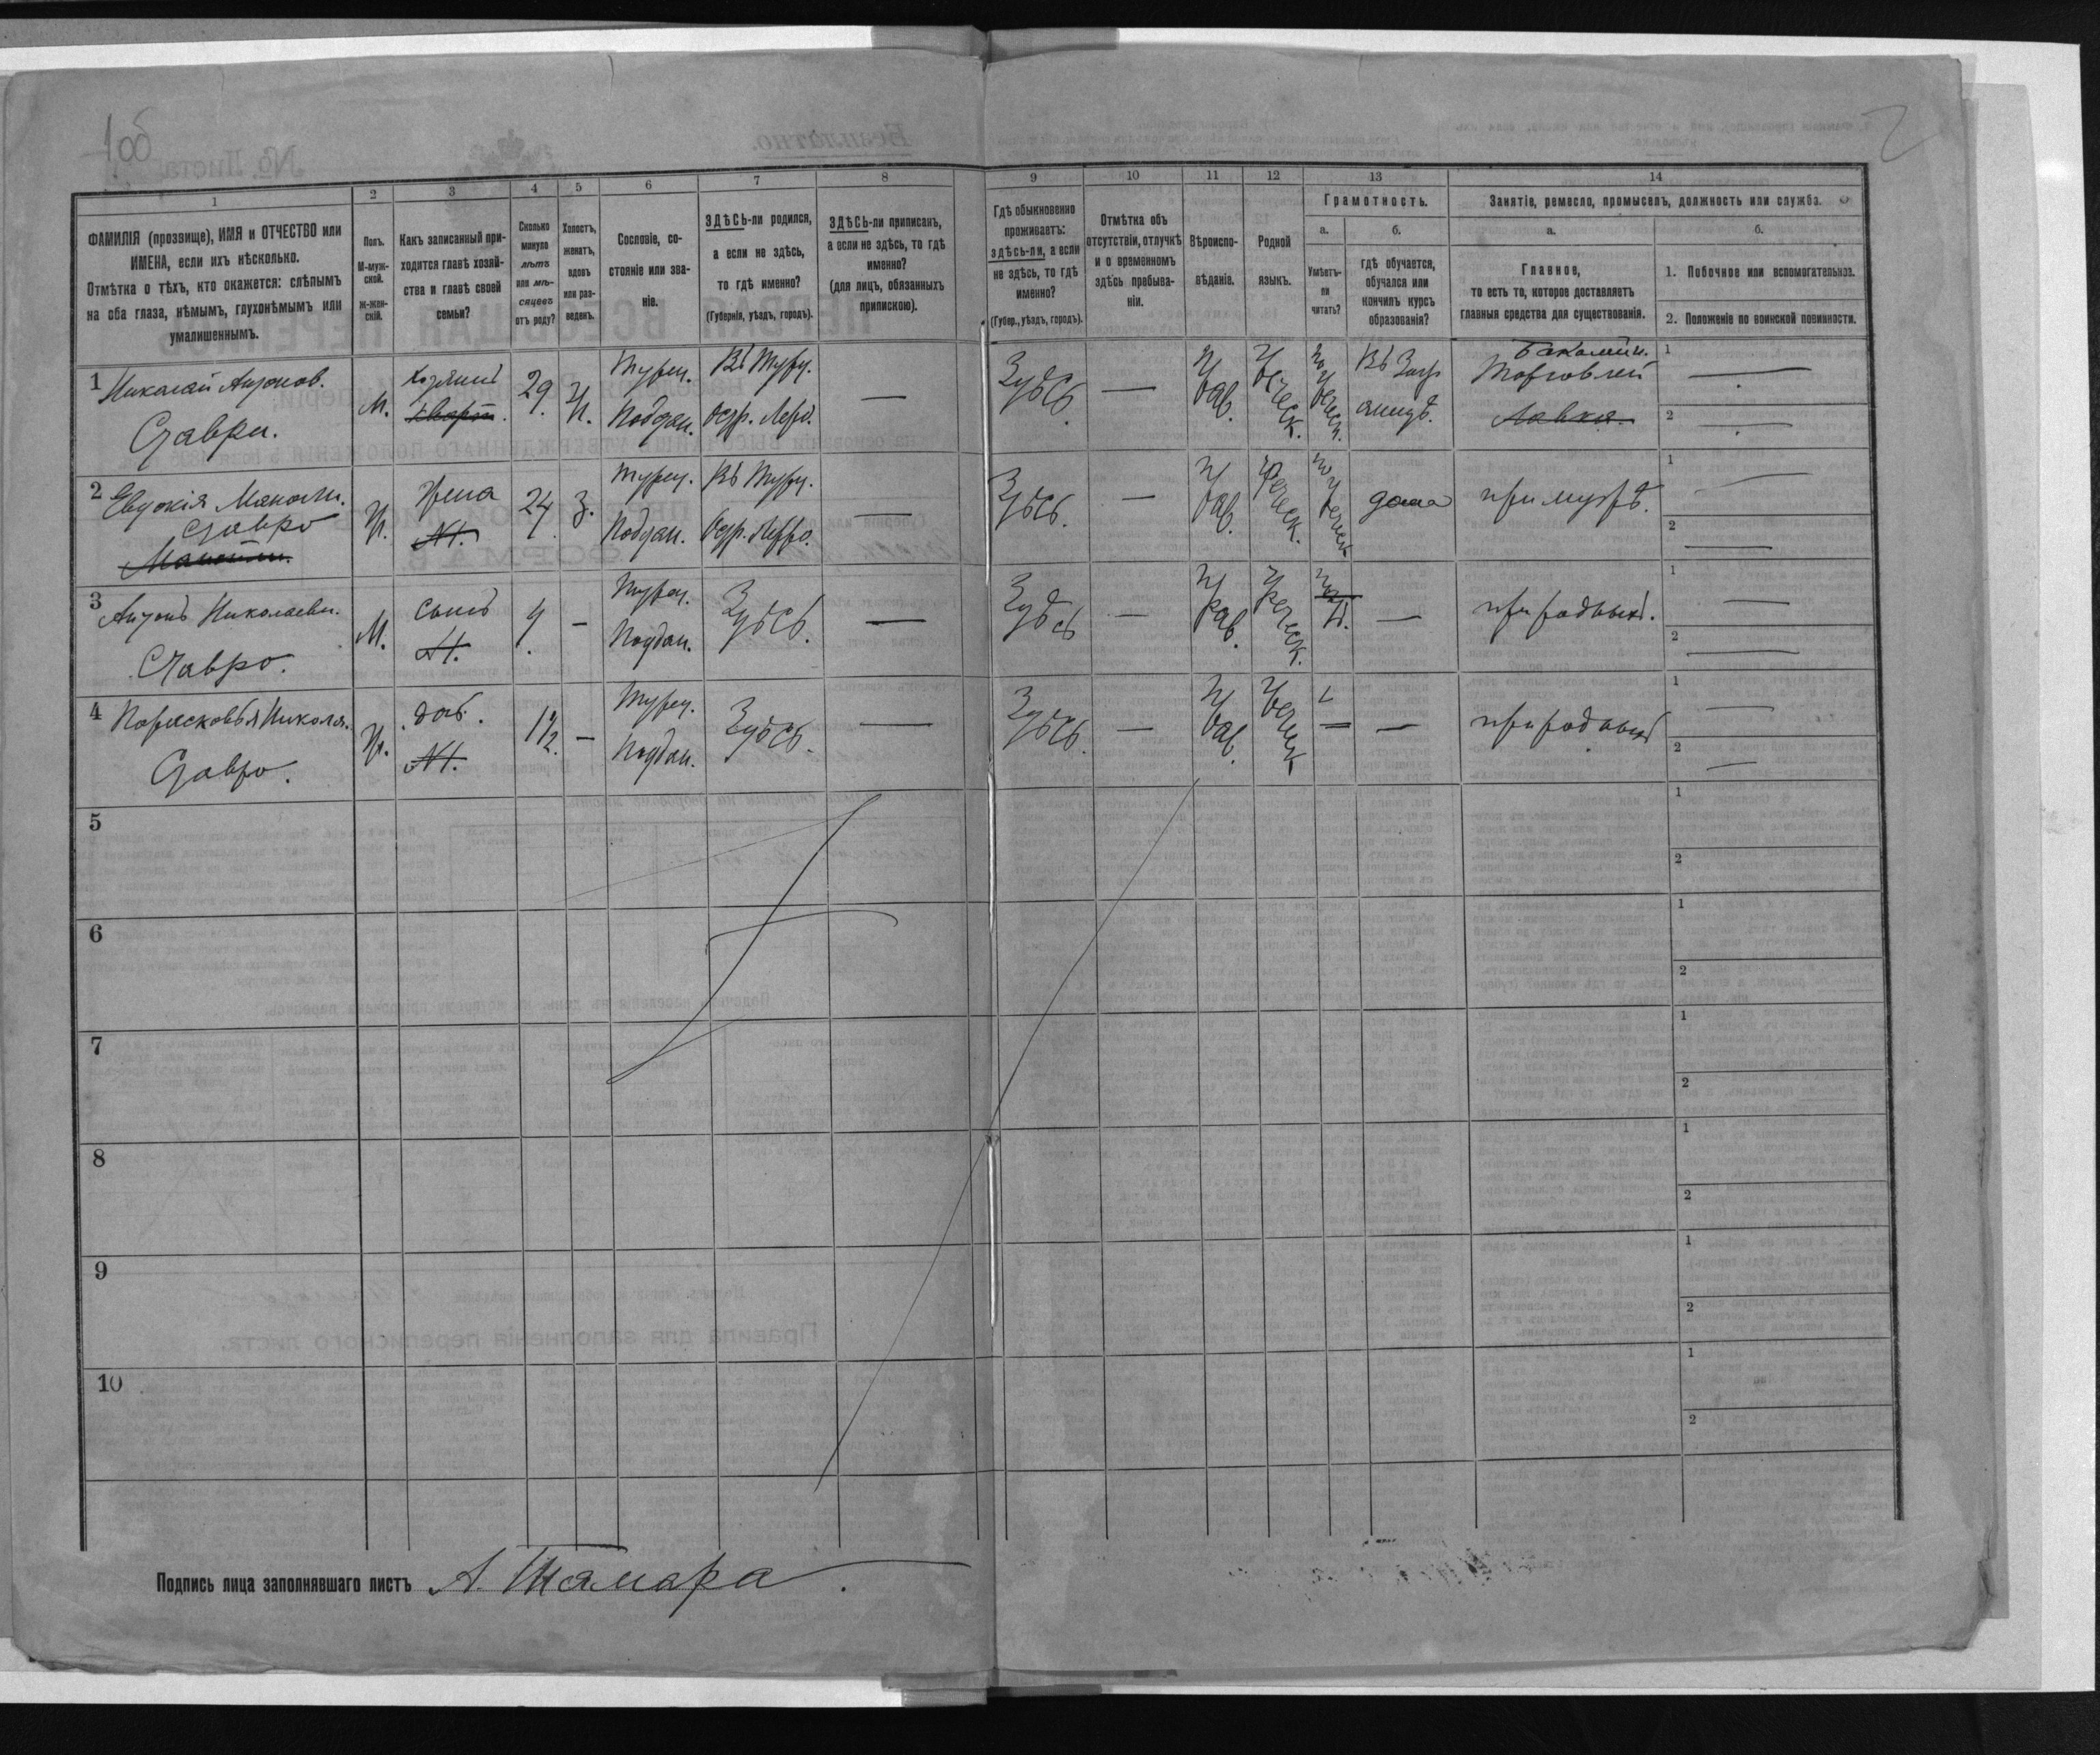 1об
2
1
ФАМИЛІЯ (прозвище), ИМЯ и ОТЧЕСТВО или
ИМЕНА, если ихъ нѣсколько.
Отмѣтка о тѣхъ, кто окажется: слѣпымъ
на оба глаза, нѣмымъ, глухонѣмымъ или
умалишеннымъ.
2
Полъ.
М-муж-
ской.
ж-жен-
скій.
3
Какъ записанный при-
ходится главѣ хозяй-
ства и главѣ своей
семьи?
4
Сколько
минуло
лѣтъ
или мѣ-
сяцевъ
отъ роду?
5
Холостъ,
женатъ,
вдовъ
или раз-
веденъ.
6
Сословіе, со-
стояніе или зва-
ніе.
7
ЗДѢСЬ-ли родился,
а если не здѣсь,
то гдѣ именно?
(Губернія, уѣздъ, городъ).
8
ЗДѢСЬ-ли приписанъ,
а если не здѣсь, то гдѣ
именно?
(для лицъ, обязанныхъ
припискою).
9
Гдѣ обыкновенно
проживаетъ:
здѣсь-ли, а если
не здѣсь, то гдѣ
именно?
(Губер., уѣздъ, городъ).
10
Отмѣтка объ
отсутствіи, отлучкѣ
и о временномъ
здѣсь пребыва-
ніи.
11
Вѣроиспо-
вѣданіе.
12
Родной
языкъ.
13
Грамотность.
а.
Умѣетъ-
ли
читать?
б.
гдѣ обучается,
обучался или
кончилъ курсъ
образованія?
14
Занятіе, ремесло, промыселъ, должность или служба.
а.
Главное,
то есть то, которое доставляетъ
главныя средства для существованія.
б.
1. Побочное или вспомогательное.
2. Положеніе по воинской повинности.
1 Николай Антонов.
Ставри.
М.
Хозяинъ
кварт.
29.
Ж.
Турец.
Поддан.
Въ Турц.
—
Здѣсь.
—
Прав.
Греческ.
по Греческ.
Въ
Бакалейн.
Торговлей
Лавка.
1 —
2 —
2 Евдокія Маноли.
Ставро
Маноили.
Ж.
Жена
N1.
24
З.
Турец.
Поддан.
Въ Турц.
—
Здѣсь.
—
Прав.
Греческ.
по Греческ
дома
при мужѣ.
1 —
2 —
3 Антонъ Николаеви.
Ставро.
М.
сынъ
N1.
4.
—
Турец.
Поддан.
Здѣсь.
—
Здѣсь
—
Прав.
Греческ.
—
при родных.
1 —
2 —
4 Парасковья Никола.
Ставро.
Ж.
доч.
N1.
1 1/2.
—
Турец.
Поддан.
Здѣсь.
—
Здѣсь.
—
Прав.
Греческ
—
—
при родных
1 —
2 —
5
1
2
6
1
2
7
1
2
8
1
2
9
1
2
10
1
2
Подпись лица заполнявшаго листъ А. Тамара.